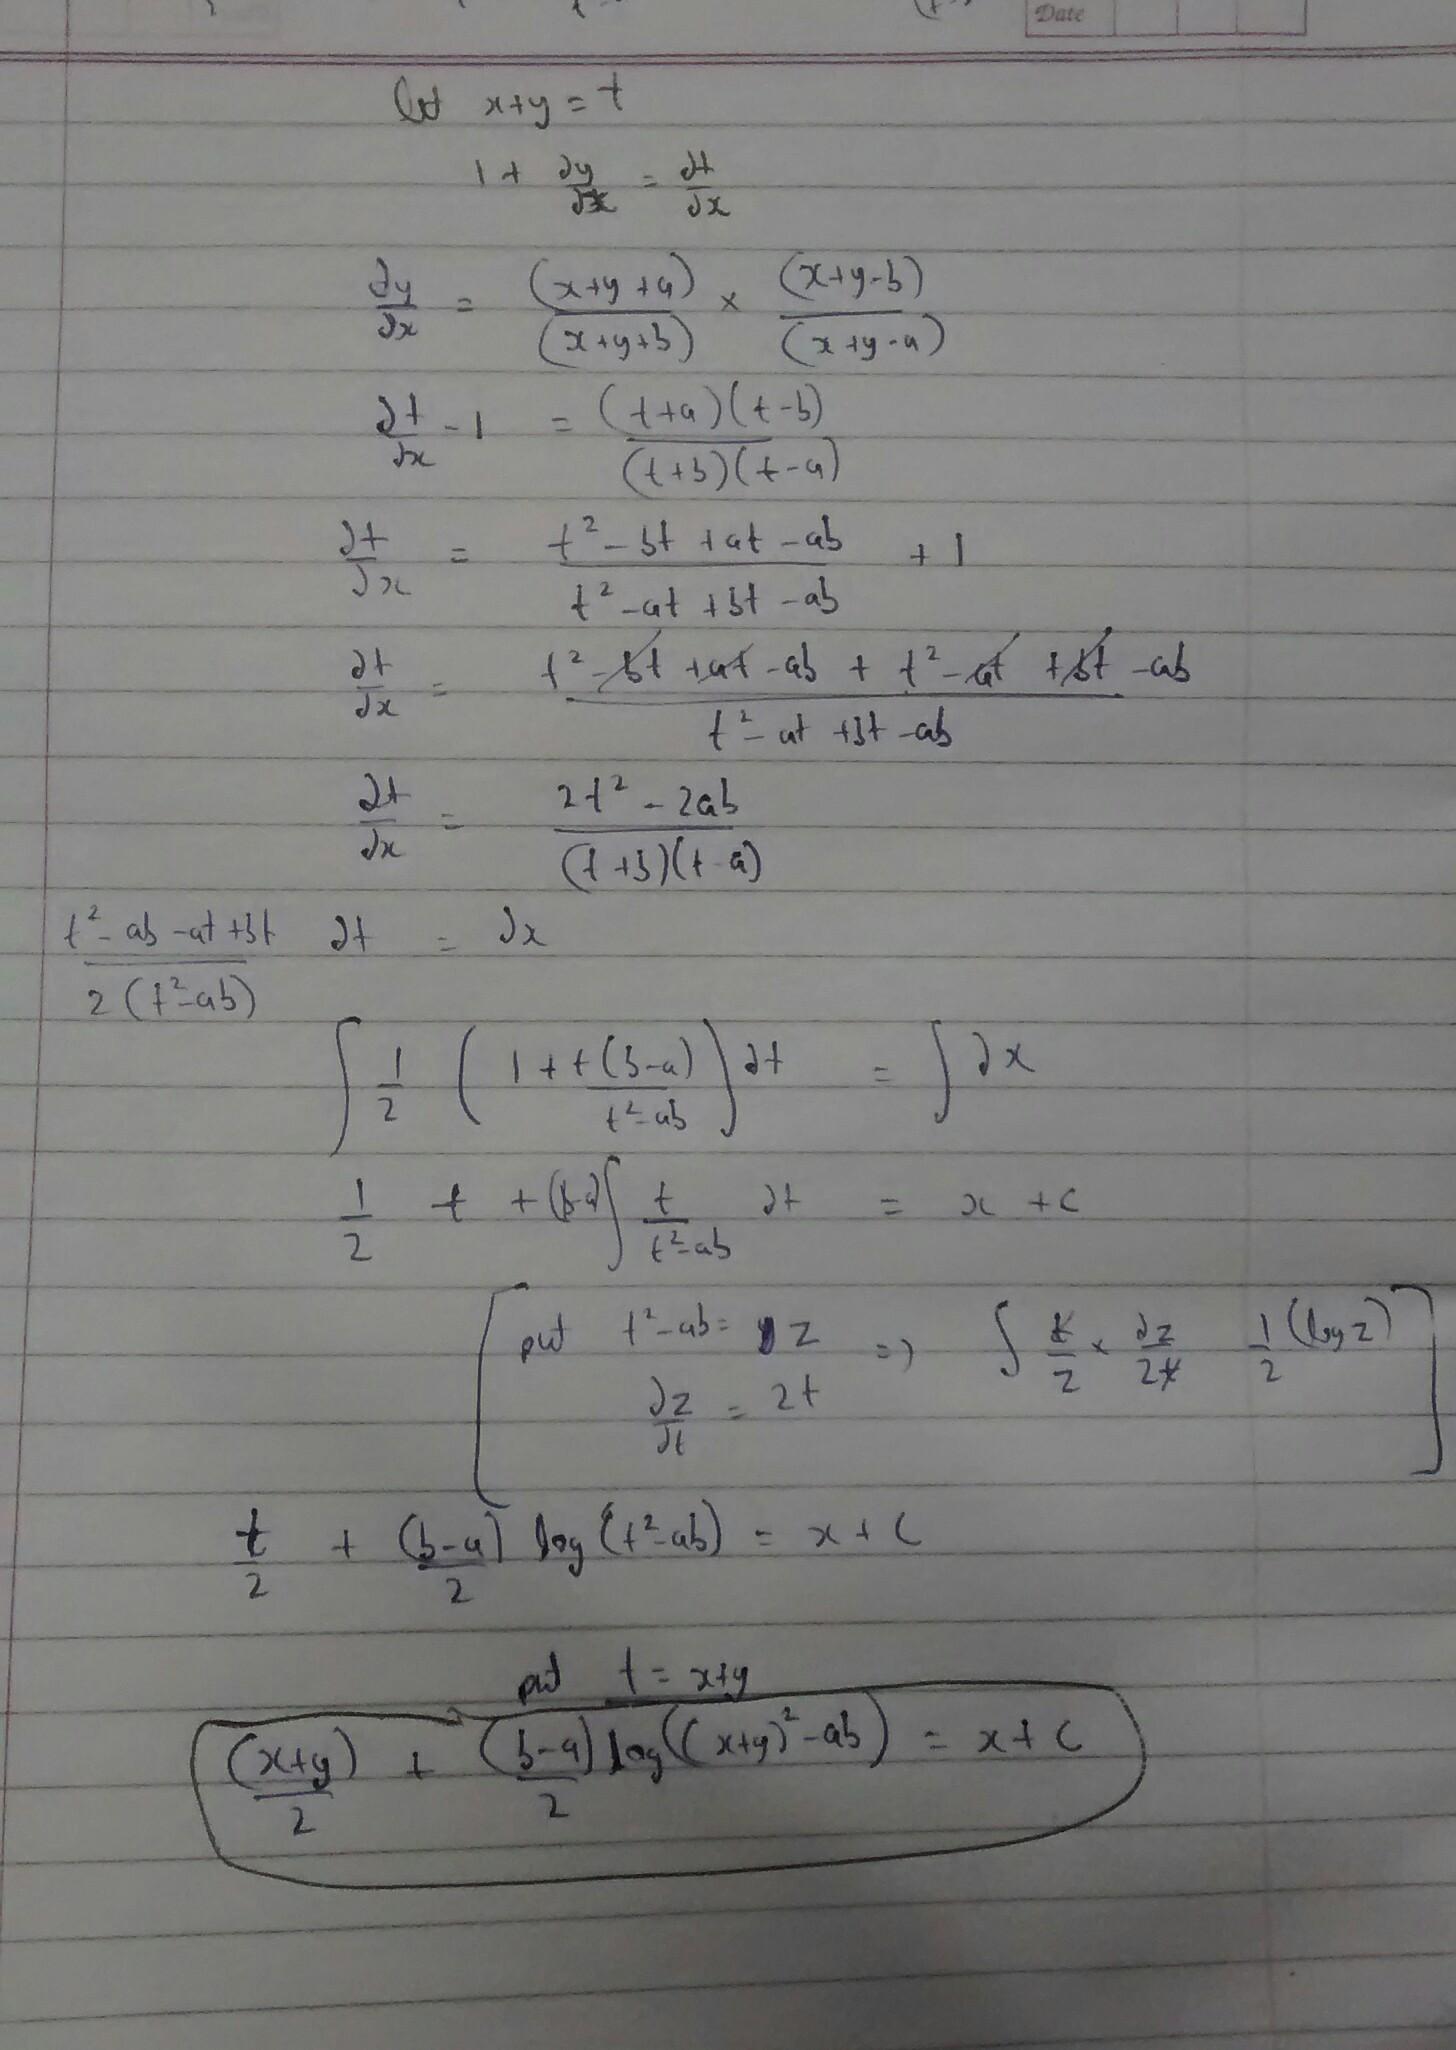 Date
let x+y = t
1 + dy/dx = dt/dx
dy/dx = (x+y+a)/(x+y+b) × (x+y-b)/(x+y-a)
dt/dx - 1 = (t+a)(t-b)/(t+b)(t-a)
dt/dx = t² - bt + at - ab / t² - at + bt - ab + 1
dt/dx = t² - bt + at - ab + t² - at + bt - ab / t² - at + bt - ab
dt/dx = 2t² - 2ab / (t+b)(t-a)
t² - ab - at + bt / 2(t²-ab) dt = dx
∫ 1/2 (1 + t(b-a)/t²-ab) dt = ∫ dx
1/2 t + (b-a) ∫ t/t²-ab dt = x + c
put t²-ab = z => ∫ t/z × dz/2t 1/2 (log z)
dz/dt = 2t
t/2 + (b-a)/2 log(t²-ab) = x + c
put t = x+y
(x+y)/2 + (b-a)/2 log((x+y)²-ab) = x + c